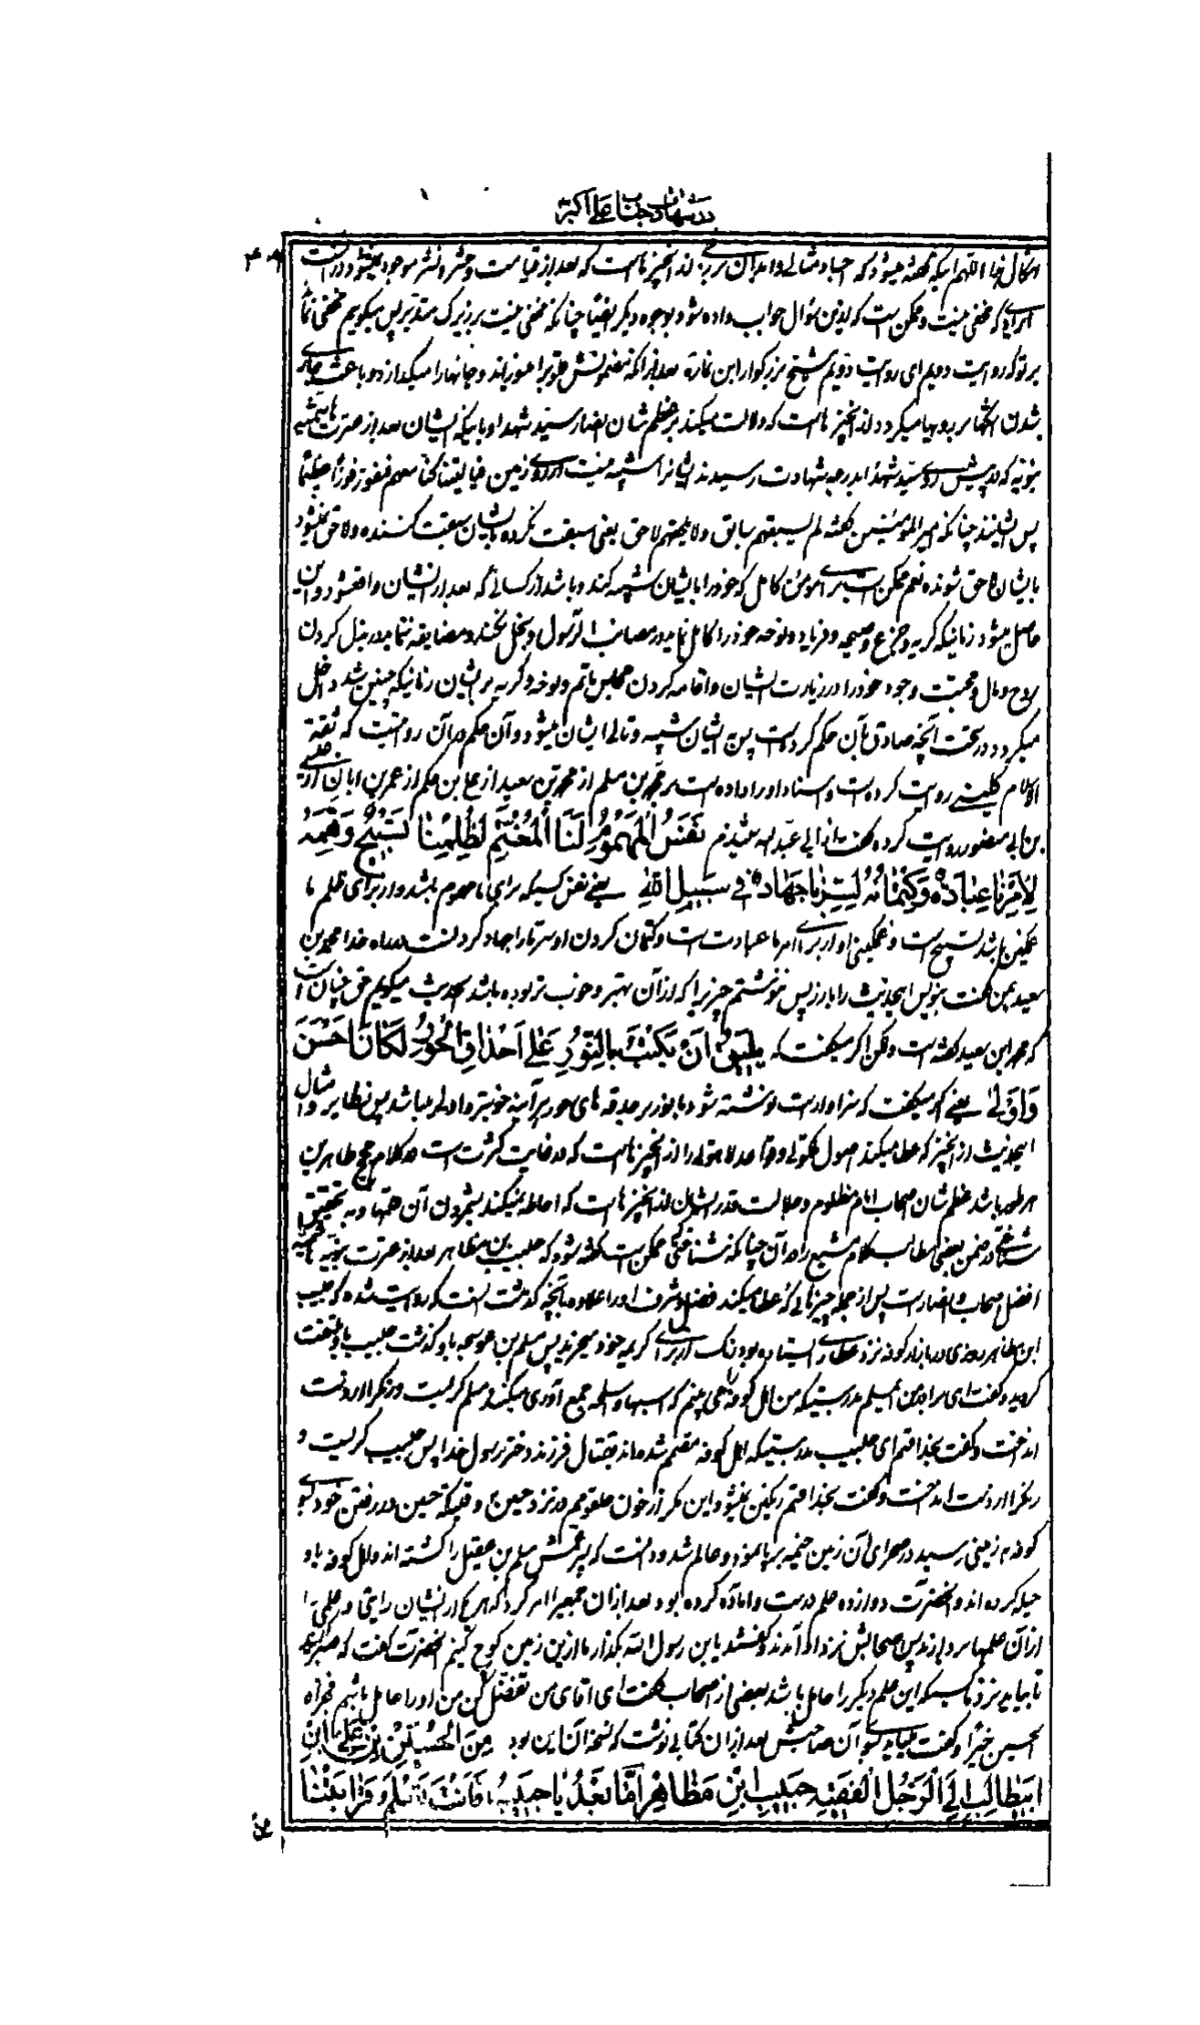 در شهادت جناب علی اکبر
اشکال نما اللهم اینکه گفته میشود که اجساد مثالی و ابدان برزخی از آنچیزهاست که بعد از قیامت و حشر و نشر موجود نمیشود و در آنست
ایرادی که مخفی نیست و ممکن است که ازین سؤال جواب داده شود بوجوه دیگر ایضا چنانکه مخفی نیست بر زیرک متدبر پس میگوییم مخفی نماند
بر تو که روایت دویم ای روایت دویم شیخ بزرگوار ابن نما که بعد از آنکه مضمونش جگر را میسوزاند و جانها را میگدازد و باعث جاری
شدن اشکها میگردد از آنچیزهاست که دلالت میکند بر عظم شان انصار سید شهدا و باینکه ایشان بعد از عترت هاشمیه
نبویه که در پیش روی سید شهدا بدرجه شهادت رسیدند ایشانرا شبیه نیست در روی زمین فیا لیتنا کنا معهم فنفوز فوزا عظیما
پس ایشانند چنانکه امیر المؤمنین گفته لم یسبقهم سابق ولا یلحقهم لاحق یعنی سبقت نکرده بایشان سبقت کننده و لاحق نمیشود
بایشان لاحق شونده نعم ممکن است برای مؤمن کامل که خود را بایشان شبیه کند و باشد از کسانی که بعد از ایشان واقعشود و این
حاصل میشود زمانیکه گریه و جزع و صیحه و فریاد و نوحه خود را کامل نماید در مصائب آل رسول و بخل نکند و مضایقه ننماید در بذل کردن
روح و مال و محبت وجود خود را در زیارت ایشان و اقامه کردن مجلس ماتم و نوحه و گریه بر ایشان زمانیکه چنین شد داخل
میگردد در تحت آنچه صادق بآن حکم کرده است پس به ایشان شبیه و تالی ایشان میشود و آن حکم در آن روایتیست که ثقة
الاسلام کلینی روایت کرده است و اسناد او را داده است بر محمد بن مسلم از محمد بن سعید از علی بن حکم از عمر بن ابان از عیسی
بن ابی منصور روایت کرده گفت از ابی عبدالله شنیدم نَفَسُ الْمَهْمُومِ لَنَا الْمُغْتَمِّ لِظُلْمِنَا تَسْبِیحٌ وَهَمُّهُ
لِأَمْرِنَا عِبَادَةٌ وَکِتْمَانُهُ لِسِرِّنَا جِهَادٌ فِی سَبِیلِ اللّهِ یعنی نفس کسیکه برای ما مهموم باشد و از برای ظلم ما
غمگین باشد تسبیح است و غمگینی او از برای امر ما عبادت است و کتمان کردن او سر ما را جهاد کردنست در راه خدا محمد بن
سعید بمن گفت بنویس اینحدیث را بآب زر پس ننوشتم چیزیرا که از آن بهتر و خوب تر بوده باشد الحدیث میگویم حق چنان است
که محمد ابن سعید گفته است ولکن اگر میگفت که یَلِیقُ اَنْ یُکْتَبَ بِالنُّورِ عَلی اَحْدَاقِ الْحُورِ لَکَانَ اَحْسَنَ
وَاَوْلی یعنی اگر میگفت که سزاوار است نوشته شود با نور بر حدقه های حور هر آینه خوبتر و اولی میباشد پس نظایر و امثال
هر طور باشد عظم شان اصحاب امام مظلوم و جلالت قدر ایشان از آنچیزهاست که احاطه نمیکند بشمردن آن
افضل اصحاب و انصار است پس از جمله چیزهائی که عطا میکند فضل و شرف او را علاوه بآنچه گذشت آنست که روایت شده که حبیب
ابن مظاهر روزی در بازار کوفه نزد عطاری ایستاده بود رنگ از برای کریمه خود میخرید پس مسلم بن عوسجه باو گذشت حبیب باو ملتفت
گردید و گفت ای برادر من ای مسلم بدرستیکه من اهل کوفه را می بینم که اسبها و اسلحه جمع آوری میکنند مسلم گریست و رنگ را از دست
انداخت و گفت بخدا قسم ای حبیب بدرستیکه اهل کوفه مصمم شده اند بقتال فرزند دختر رسول خدا پس حبیب گریست و
رنگ را از دست انداخت و گفت بخدا قسم رنگین نمیشود این مگر از خون حلقومم در نزد حسین و قتیکه حسین در رفتن خود بسوی
کوفه بزمینی رسید در صحرای آن زمین خیمه بر پا نمود و عالم شد و دانست که پسر عمش مسلم بن عقیل را کشته اند و اهل کوفه باو
حیله کرده اند و آنحضرت دوازده علم درست و آماده کرده بود بعد از آن جمعیرا امر کرد که هر یک از ایشان رایتی و علمی را
از آن علمها بردارند پس اصحابش نزد او آمدند و گفتند یا بن رسول الله بگذار ما ازین زمین کوچ کنیم آنحضرت گفت که صبر کنید
تا بیاید نزد ما کسیکه این علم دیگر را حامل باشد بعضی از اصحاب گفت ای آقای من تفضل کن من او را حامل باشم فجزاه
الحسین خیرا و گفت میاید بسوی آن صاحبش بعد از آن کتابی نوشت که نسخه آن این بود مِنَ الْحُسَیْنِ بْنِ عَلِیِّ ابْنِ
اَبِیطَالِبٍ اِلَی الرَّجُلِ الْفَقِیهِ حَبِیبِ ابْنِ مَظَاهِرٍ اَمَّا بَعْدُ یَا حَبِیبُ فَاَنْتَ تَعْلَمُ قَرَابَتَنَا